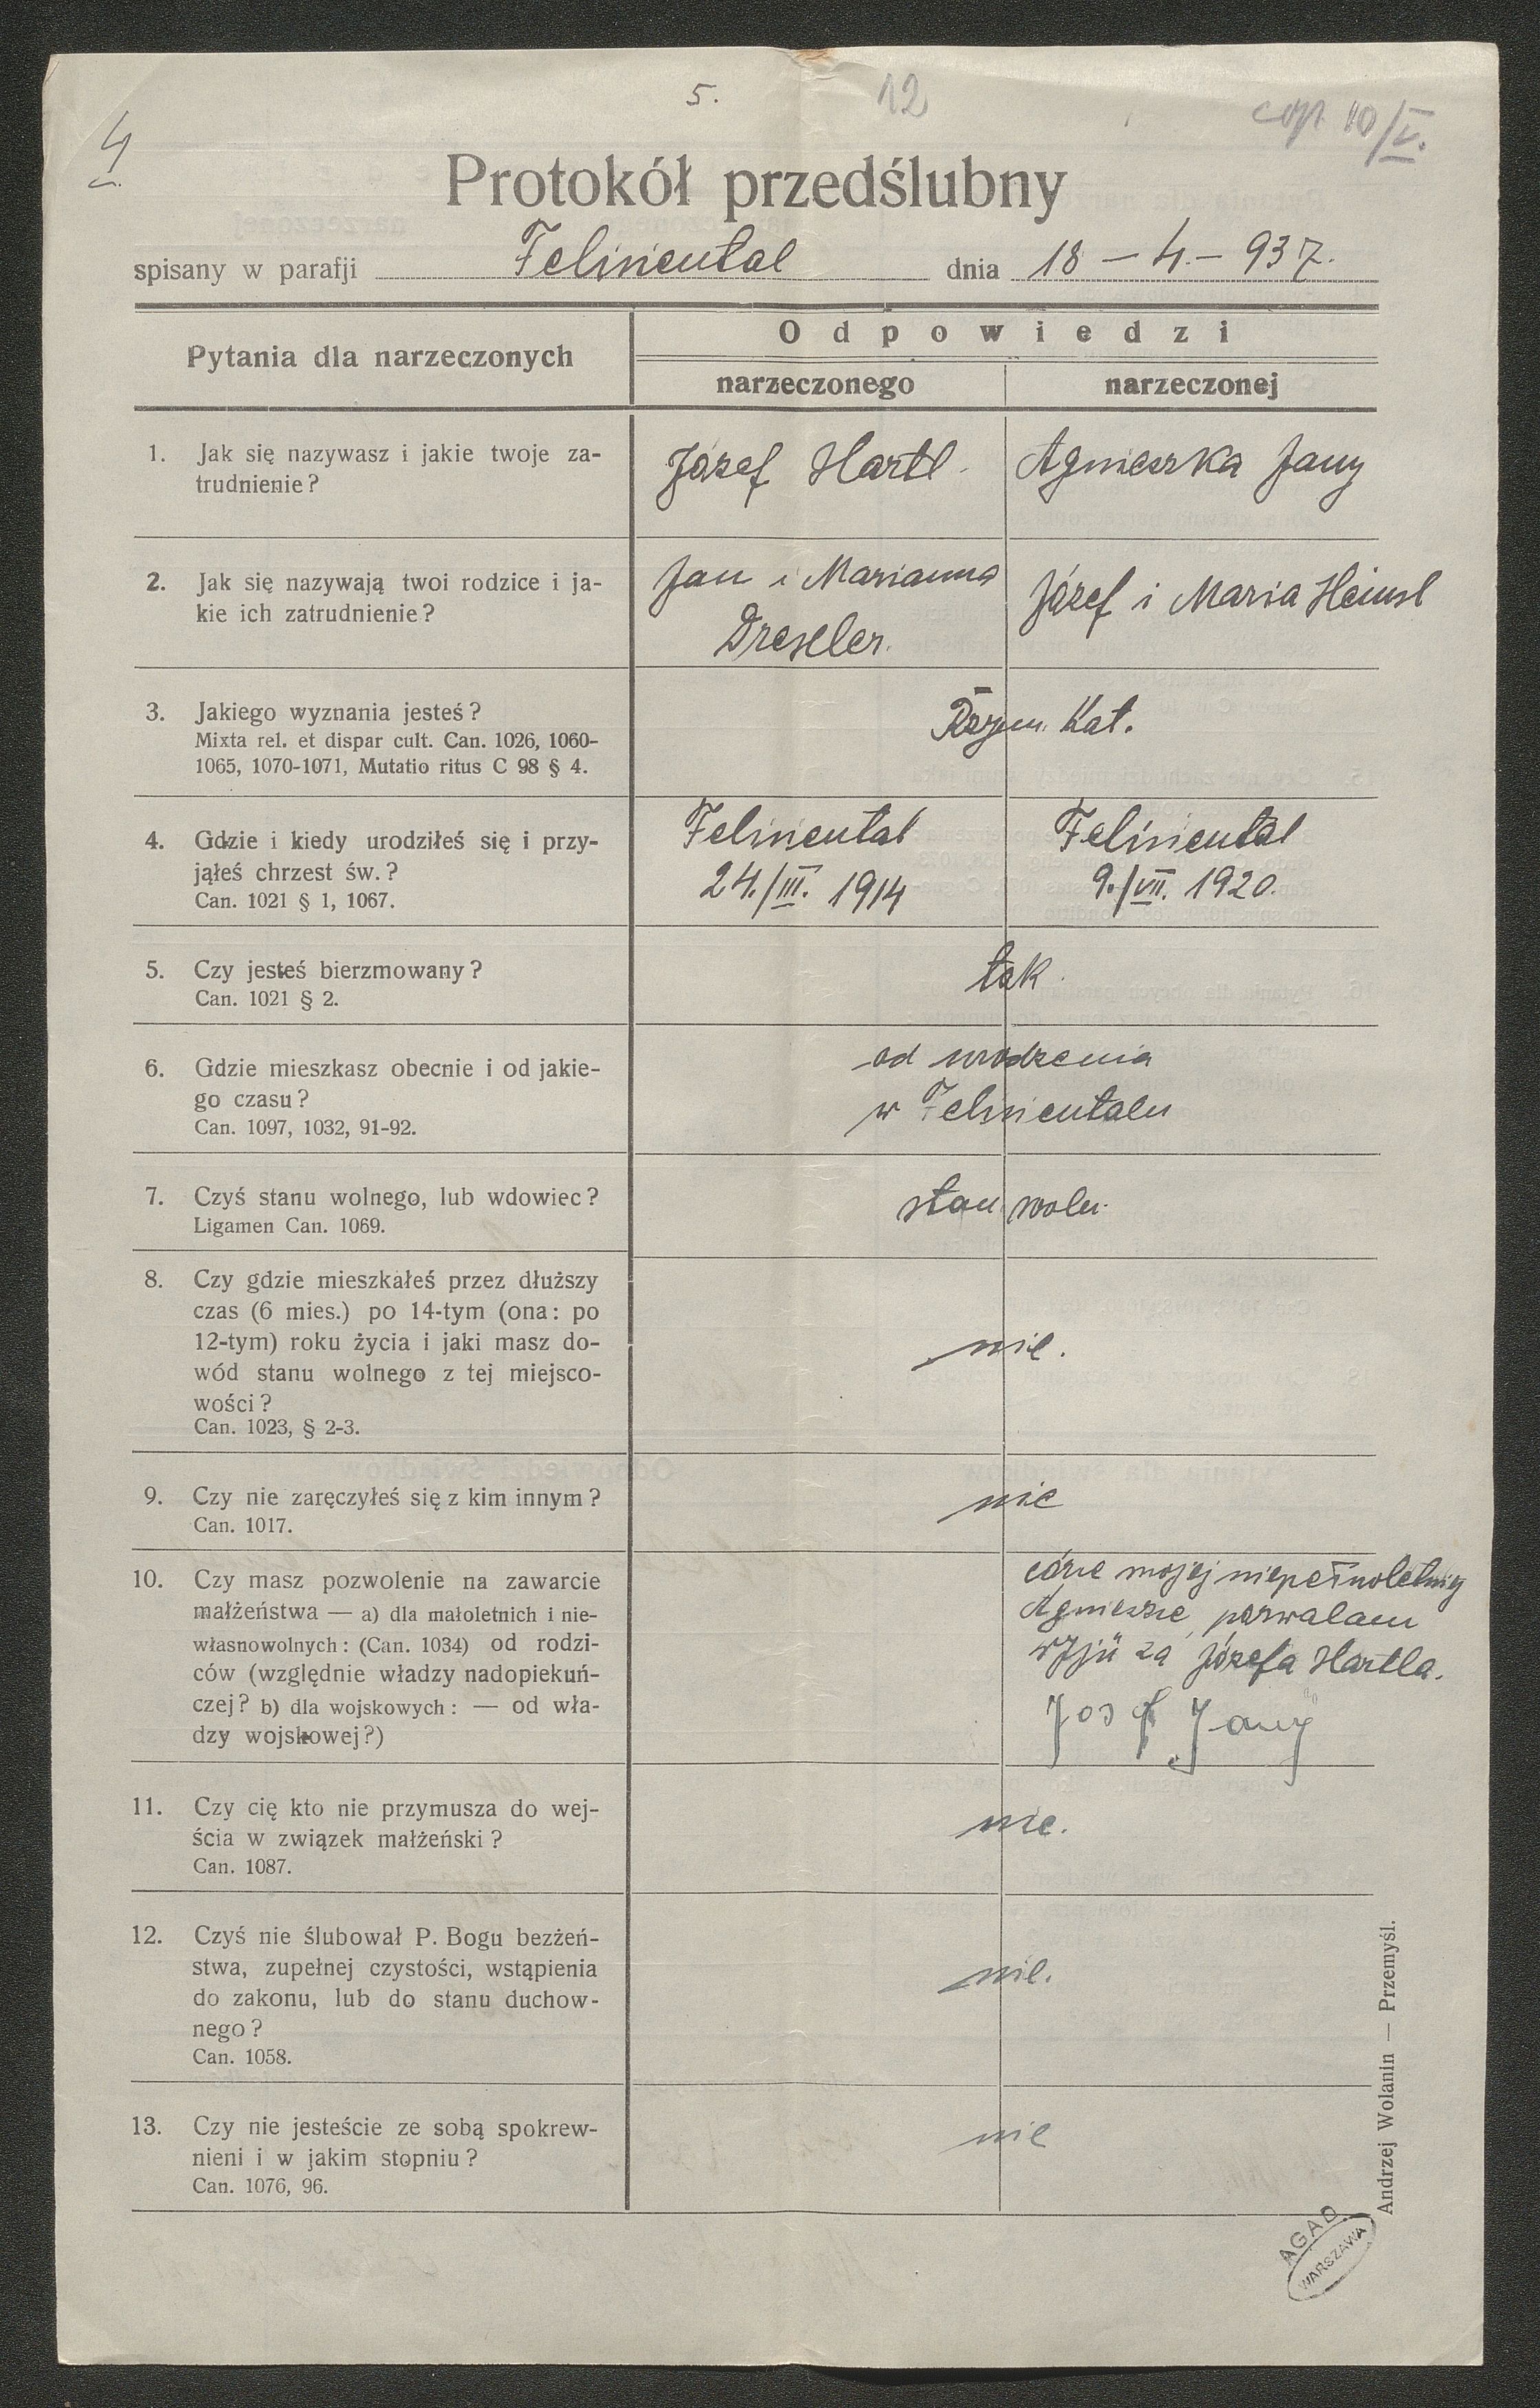 5. 12
cop. 10/V.
4
Protokół przedślubny
spisany w parafji Feliziental dnia 18 – 4. – 937.
Pytania dla narzeczonych
Odpowiedzi
narzeczonego narzeczonej
1. Jak się nazywasz i jakie twoje za-
trudnienie?
Józef Hartl.
Agnieszka Jany
2. Jak się nazywają twoi rodzice i ja-
kie ich zatrudnienie?
Jan i Marianna
Dresler.
Józef i Maria
3. Jakiego wyznania jesteś?
Mixta rel. et dispar cult. Can. 1026, 1060-
1065, 1070-1071, Mutatio ritus C 98 § 4.
Rzym. Kat.
4. Gdzie i kiedy urodziłeś się i przy-
jąłeś chrzest św.?
Can. 1021 § 1, 1067.
Feliziental
24./III. 1914
Feliziental
9./VII. 1920.
5. Czy jesteś bierzmowany?
Can. 1021 § 2.
tak
6. Gdzie mieszkasz obecnie i od jakie-
go czasu?
Can. 1097, 1032, 91-92.
od urodzenia
w Felizientalu
7. Czyś stanu wolnego, lub wdowiec?
Ligamen Can. 1069.
stan woln.
8. Czy gdzie mieszkałeś przez dłuższy
czas (6 mies.) po 14-tym (ona: po
12-tym) roku życia i jaki masz do-
wód stanu wolnego z tej miejsco-
wości?
Can. 1023, § 2-3.
nie.
9. Czy nie zaręczyłeś się z kim innym?
Can. 1017.
nie
10. Czy masz pozwolenie na zawarcie
małżeństwa — a) dla małoletnich i nie-
własnowolnych: (Can. 1034) od rodzi-
ców (względnie władzy nadopiekuń-
czej? b) dla wojskowych: — od wła-
dzy wojskowej?)
córce mojej niepełnoletniej
Agnieszce pozwalam
wyjść za Józefa Hartla.
Josef Jany
11. Czy cię kto nie przymusza do wej-
ścia w związek małżeński?
Can. 1087.
nie.
12. Czyś nie ślubował P. Bogu bezżeń-
stwa, zupełnej czystości, wstąpienia
do zakonu, lub do stanu duchow-
nego?
Can. 1058.
nie.
13. Czy nie jesteście ze sobą spokrew-
nieni i w jakim stopniu?
Can. 1076, 96.
nie
Andrzej Wolanin — Przemyśl.
AGAD
WARSZAWA